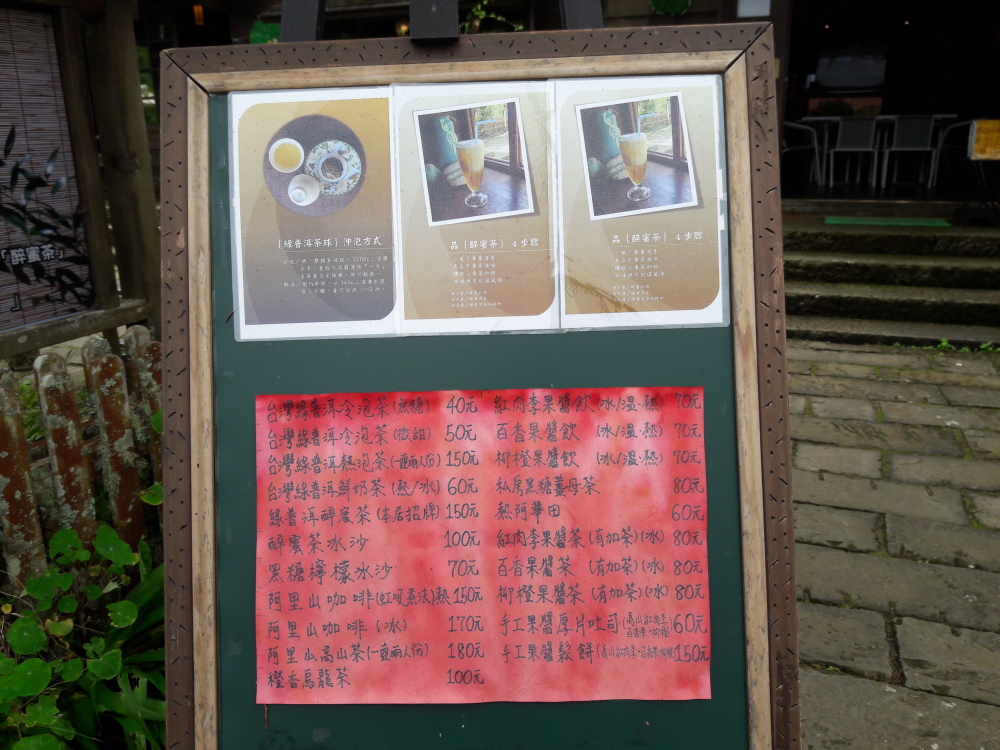 「醉蜜茶」
【綠普洱茶球】沖泡方式
品【醉蜜茶】4步驟
品【醉蜜茶】4步驟
台灣綠普洱冷泡茶(無糖) 40元
台灣綠普洱冷泡茶(微甜) 50元
台灣綠普洱熱泡茶(一壺兩人份) 150元
台灣綠普洱鮮奶茶(熱/冰) 60元
綠普洱醉蜜茶(本店招牌) 150元
醉蜜茶冰沙 100元
黑糖檸檬冰沙 70元
阿里山咖啡(虹吸蒸法)熱 150元
阿里山咖啡(冰) 170元
阿里山高山茶(一壺兩人份) 180元
橙香烏龍茶 100元
紅肉李果醬飲(冰/溫·熱) 70元
百香果醬飲 (冰/溫·熱) 70元
柳橙果醬飲 (冰/溫·熱) 70元
私房黑糖薑母茶 80元
熱阿華田 60元
紅肉李果醬茶(有加茶)(冰) 80元
百香果醬茶 (有加茶)(冰) 80元
柳橙果醬茶(有加茶)(冰) 80元
手工果醬厚片吐司 60元
手工果醬鬆餅 150元